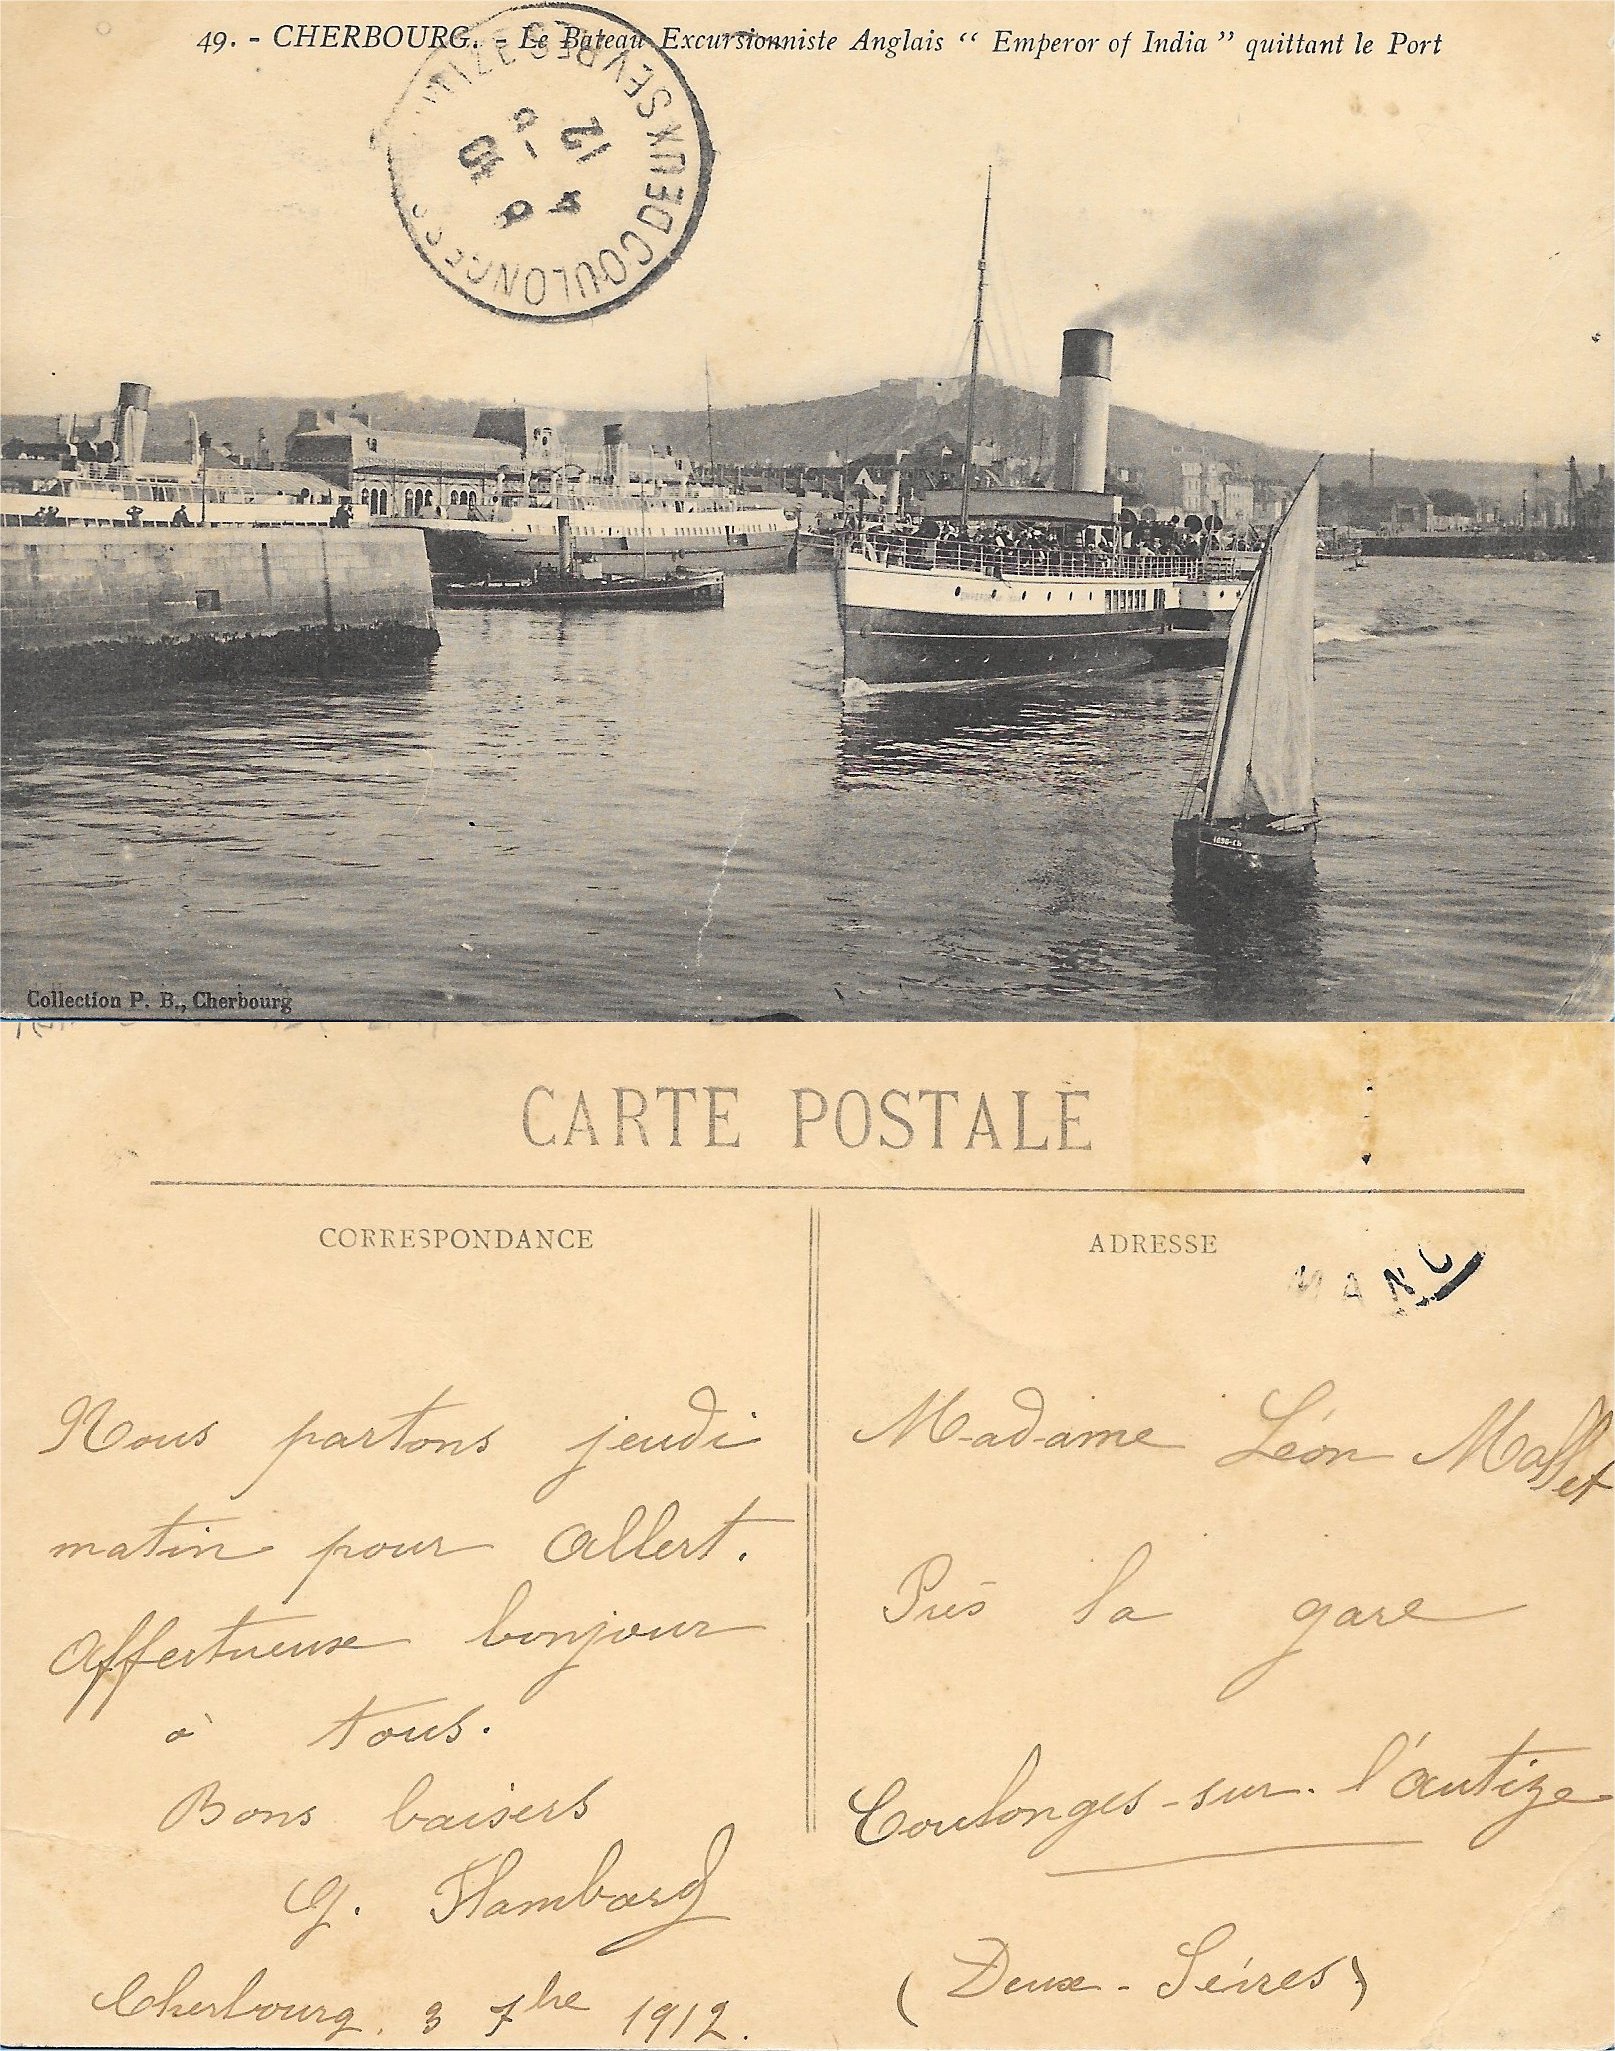 49. - CHERBOURG. - Le Bateau Excursionniste Anglais “ Emperor of India ” quittant le Port
COULONGES
DEUX SEVRES
4 - 9
12
Collection P. B., Cherbourg
CARTE POSTALE
CORRESPONDANCE
Nous partons jeudi
matin pour Allert.
Affectueux bonjour
à tous.
Bons baisers
G. Flambard
Cherbourg. 3 7bre 1912.
ADRESSE
MANC
Madame Léon Mallet
Près la gare
Coulonges-sur-l'Autize
(Deux-Sèvres)